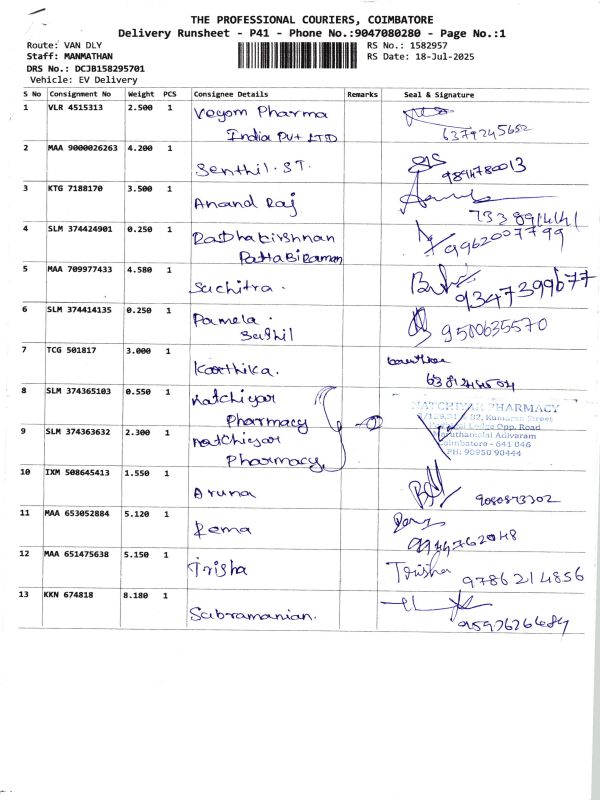 THE PROFESSIONAL COURIERS, COIMBATORE
Delivery Runsheet - P41 - Phone No.:9047080280 - Page No.:1
Route: VAN DLY
RS No.: 1582957
Staff: MANMATHAN
RS Date: 18-Jul-2025
DRS No.: DCJB158295701
Vehicle: EV Delivery
S No Consignment No Weight PCS Consignee Details Remarks Seal & Signature
1 VLR 4515313 2.500 1 Veyom Pharma
India Pvt LTD 6379245652
2 MAA 9000026263 4.200 1 Senthil. ST. 9894780013
3 KTG 7188170 3.500 1 Anand Raj
4 SLM 374424901 0.250 1 Radhakirshnan 9962007799
Pattabiraman
5 MAA 709977433 4.580 1 Suchitra. 9347399677
6 SLM 374414135 0.250 1 Pamela.
Sushil 9500635570
7 TCG 501817 3.000 1 Karthika.
8 SLM 374365103 0.550 1 Natchiyar
Pharmacy
NATCHIYAR PHARMACY
Kumaran Street
Lodge Opp. Road
Maruthamalai Adivaram
Coimbatore - 641 046
PH: 90950 90444
9 SLM 374363632 2.300 1 Natchiyar
Pharmacy
10 IXM 508645413 1.550 1 Aruna 9080873302
11 MAA 653052884 5.120 1 Rema
12 MAA 651475638 5.150 1 Trisha Trisha 9786214856
13 KKN 674818 8.180 1 Subramanian.